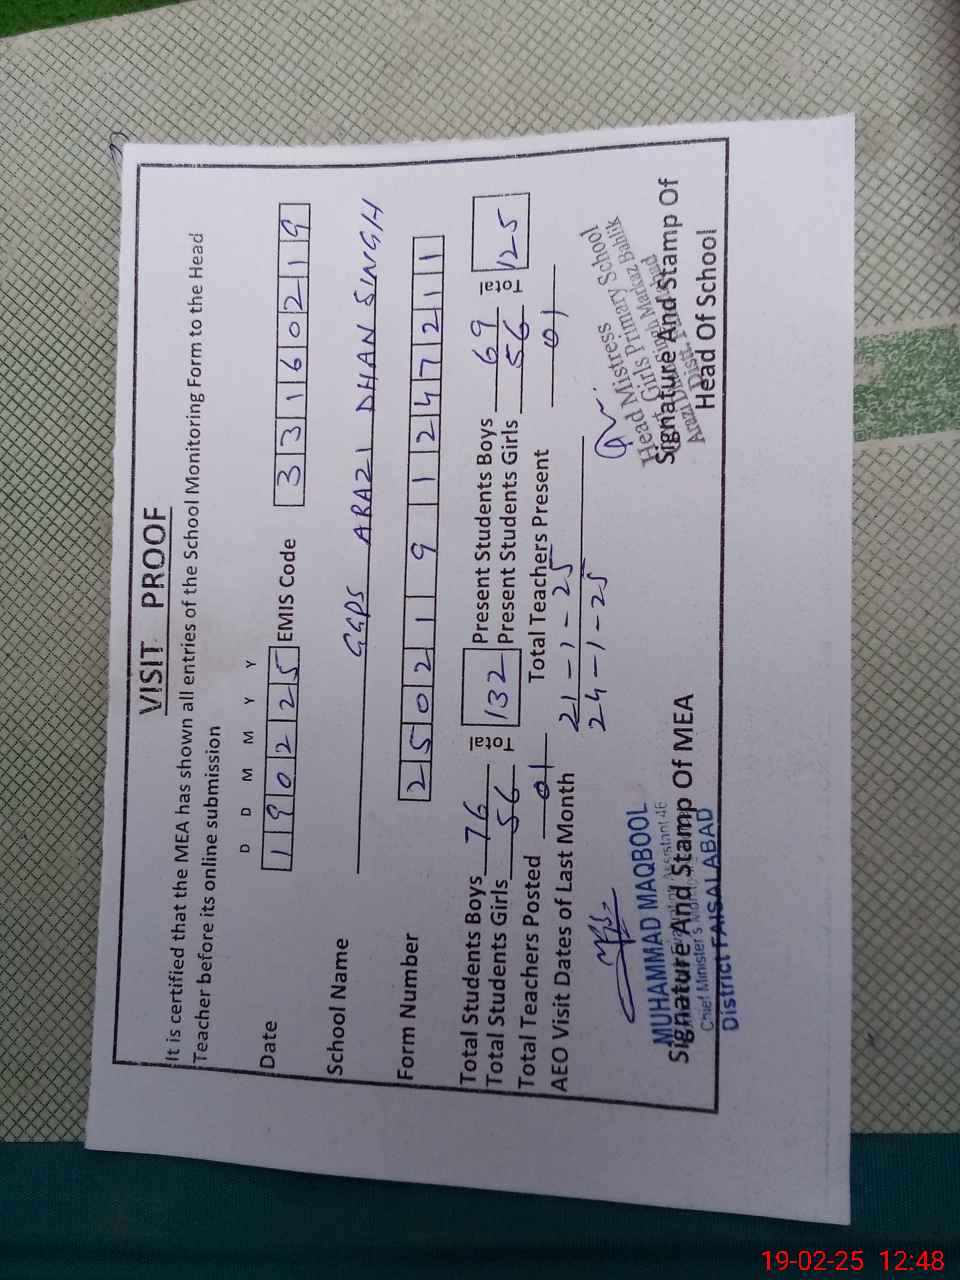 VISIT PROOF
It is certified that the MEA has shown all entries of the School Monitoring Form to the Head
Teacher before its online submission
D D M M Y Y
Date 190225 EMIS Code 33160219
School Name GGPS ARAZI DHAN SINGH
Form Number 2502191124721 1
Total Students Boys 76 Total 132 Present Students Boys 69 Total 125
Total Students Girls 56 Present Students Girls 56
Total Teachers Posted 01 Total Teachers Present 01
AEO Visit Dates of Last Month 21-1-25
24-1-25
MUHAMMAD MAQBOOL
Assistant 46
Chief Minister's
District FAISALABAD
Signature And Stamp Of MEA
Head Mistress
Girls Primary School
Arazi Dhan Singh Markaz Bahlik
Distt.
Signature And Stamp Of
Head Of School
19-02-25 12:48